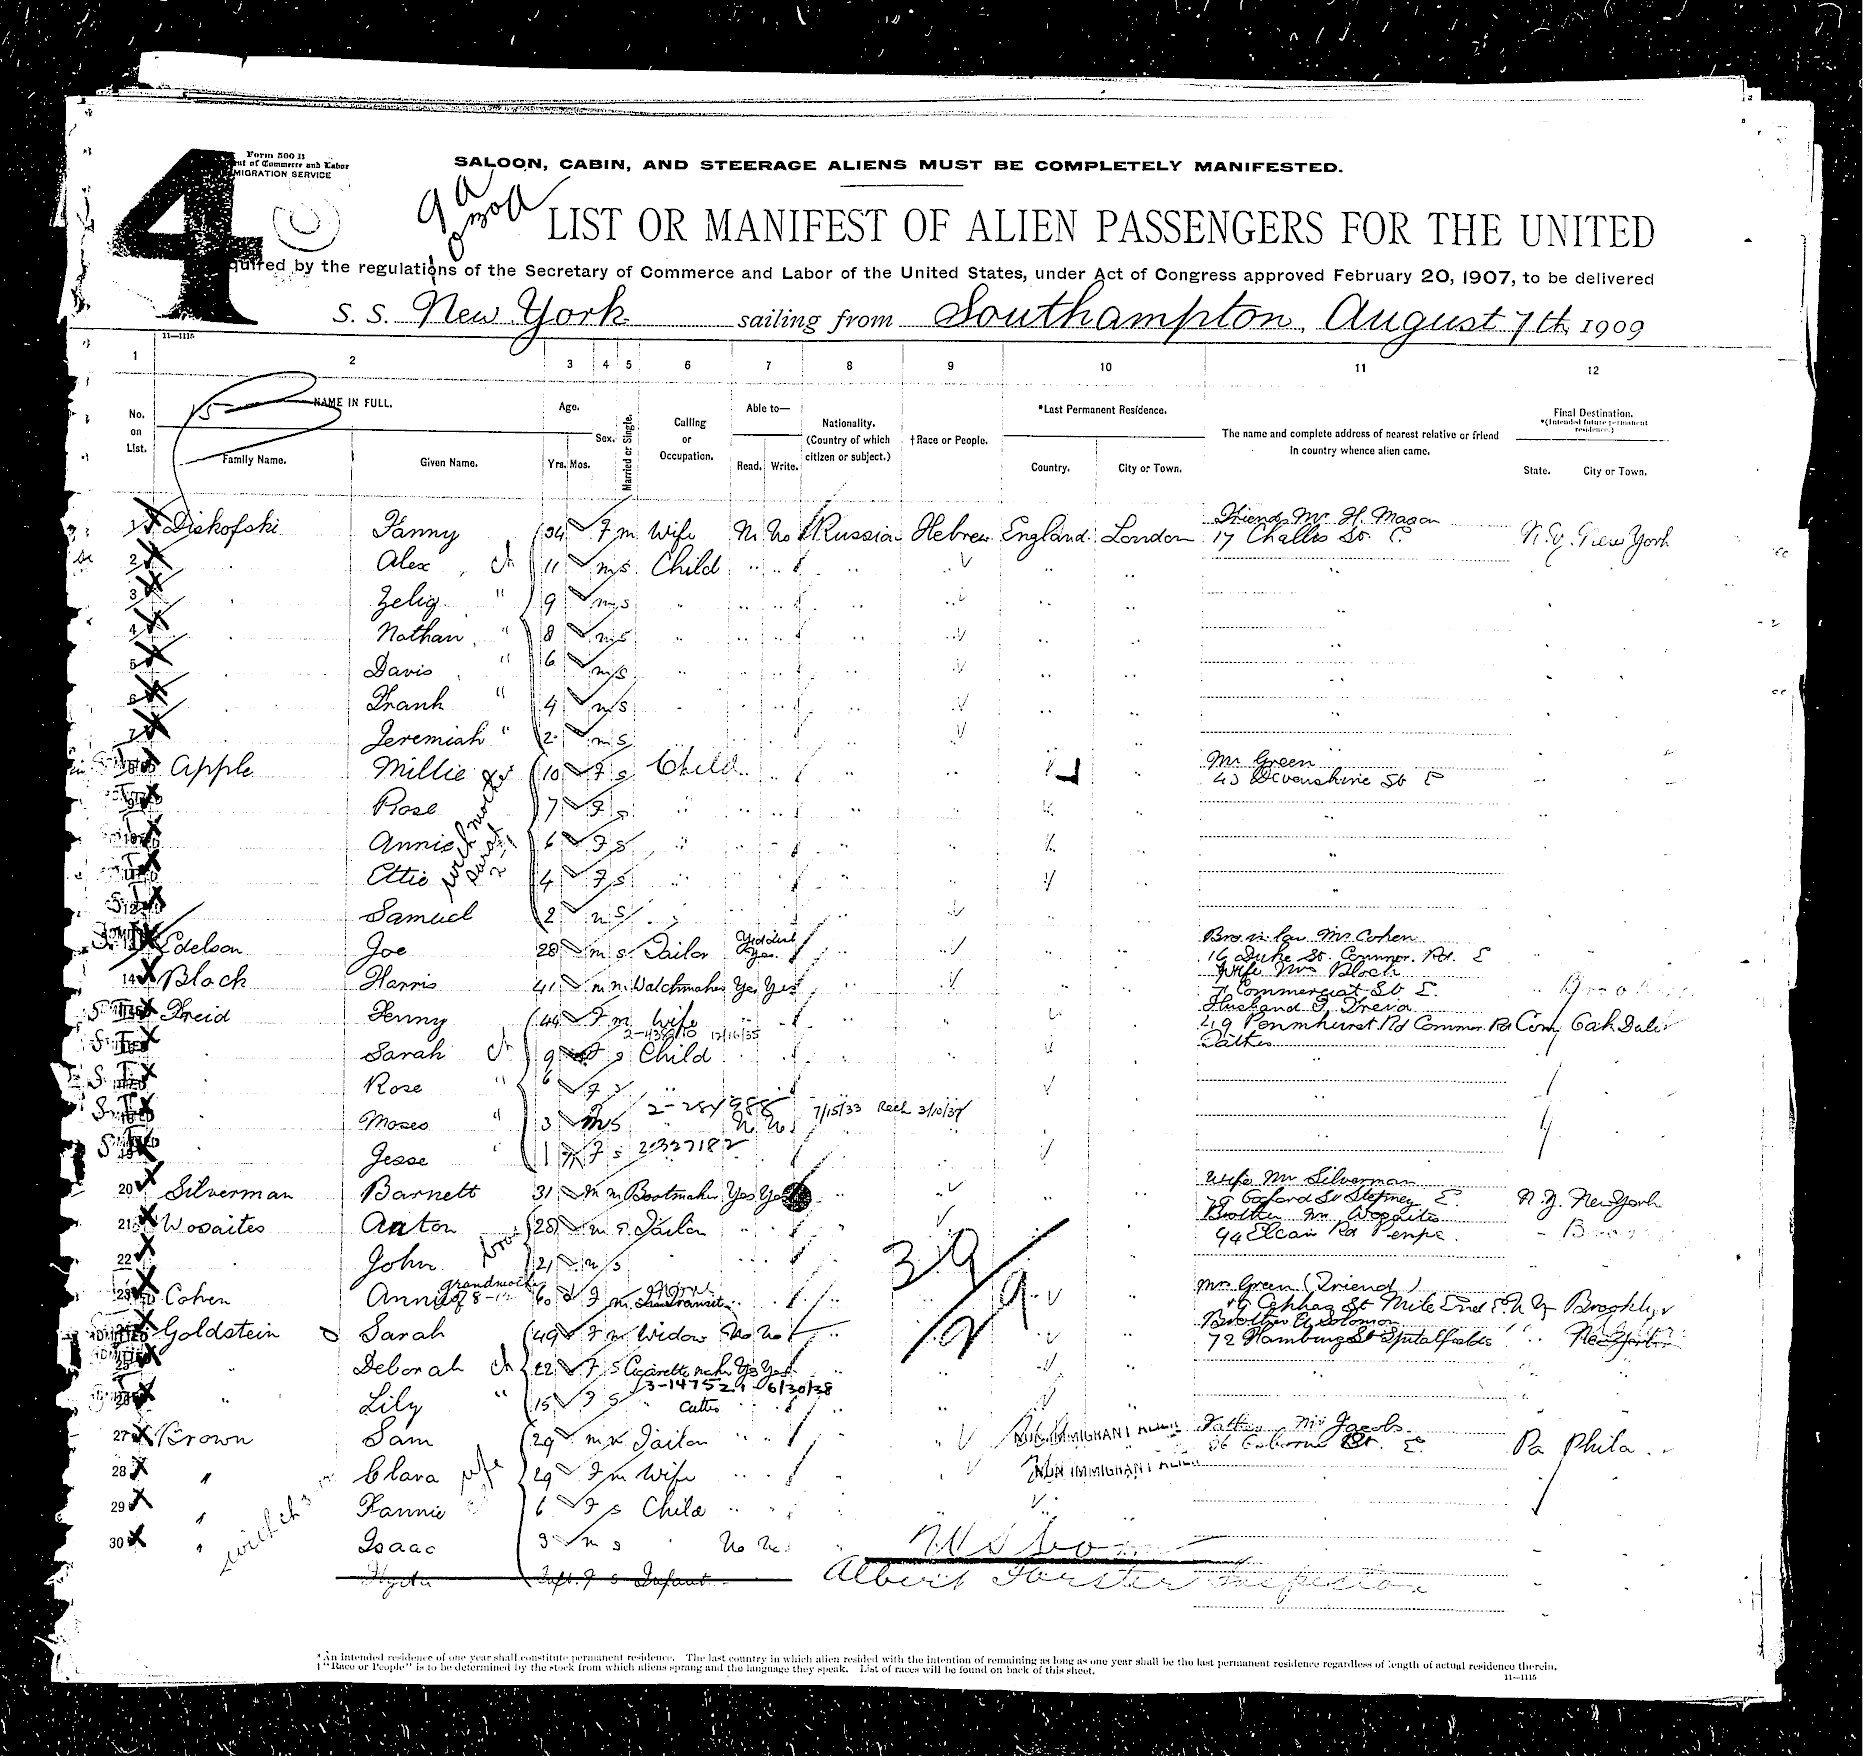 4
Form 500 B
of Commerce and Labor
MIGRATION SERVICE
SALOON, CABIN, AND STEERAGE ALIENS MUST BE COMPLETELY MANIFESTED.
LIST OR MANIFEST OF ALIEN PASSENGERS FOR THE UNITED
quired by the regulations of the Secretary of Commerce and Labor of the United States, under Act of Congress approved February 20, 1907, to be delivered
S. S. New York sailing from Southampton, August 7th, 1909
11—1115
1 2 3 4 5 6 7 8 9 10 11 12
No. on List.
NAME IN FULL.
Family Name. Given Name.
Age.
Yrs. Mos.
Sex.
Married or Single.
Calling or Occupation.
Able to—
Read. Write.
Nationality. (Country of which citizen or subject.)
†Race or People.
*Last Permanent Residence.
Country. City or Town.
The name and complete address of nearest relative or friend in country whence alien came.
Final Destination.
*(Intended future permanent residence.)
State. City or Town.
15
Friend Mr H. Mason
1 Diskofski Fanny 34 F m Wife No No Russia Hebrew England London 17 Challis St. E N.Y. New York
2 Alex ch 11 m s Child
3 Zelig " 9 m s
4 Nathan " 8 m s
5 Davis " 6 m s
6 Frank " 4 m s
7 Jeremiah " 2 m s
Mr Green
Apple Millie 10 F s Child 43 Devonshire St E
Rose 7 F s
Annie 6 F s
Ettie 4 F s
Samuel 2 m s
Edelson Joe 28 m s Tailor Yiddish Yes Bro in law Mr Cohen
16 Duke St. Commer. Rd. E
14 Block Harris 41 m m Watchmaker Yes Yes Wife Mrs Block
71 Commercial St E.
Freid Jenny 44 F m Wife Husband
Penmhurst Rd Commer. Rd Conn Oak Dale
Sarah ch 9 F s Child Father
Rose " 6 F s
Moses " 3 m s No No 7/15/33 3/10/37
Jesse " 1 F s 2337182
20 Silverman Barnett 31 m m Bootmaker Yes Yes Wife Mrs Silverman
Oxford St Stepney E. N.Y. New York
21 Wosaites Anton 28 m s Tailor Brother Mr Wosaites
94 Elcan Rd
22 John 21 m s
grandmother
Cohen Annie 60 F m Mrs Green (Friend)
St Mile End E. N.Y Brooklyn
Goldstein Sarah 49 F m Widow No No Brother Solomon
72 Hamburg St Spitalfields New York
Deborah ch 22 F s Cigarette maker Yes Yes
3-147521 6/30/38
Lily " 15 F s
39
27 Brown Sam 29 m m Tailor NON IMMIGRANT ALIEN Father Mr Jacobs
Osborne St. E Pa Phila.
28 " Clara wife 29 F m Wife NON IMMIGRANT ALIEN
29 " Fannie 6 F s Child
30 " Isaac 3 m s No No
Inft. F s Infant
Albert Forster Inspector
*An intended residence of one year shall constitute permanent residence. The last country in which alien resided with the intention of remaining as long as one year shall be the last permanent residence regardless of length of actual residence therein.
†"Race or People" is to be determined by the stock from which aliens sprang and the language they speak. List of races will be found on back of this sheet.
11—1115